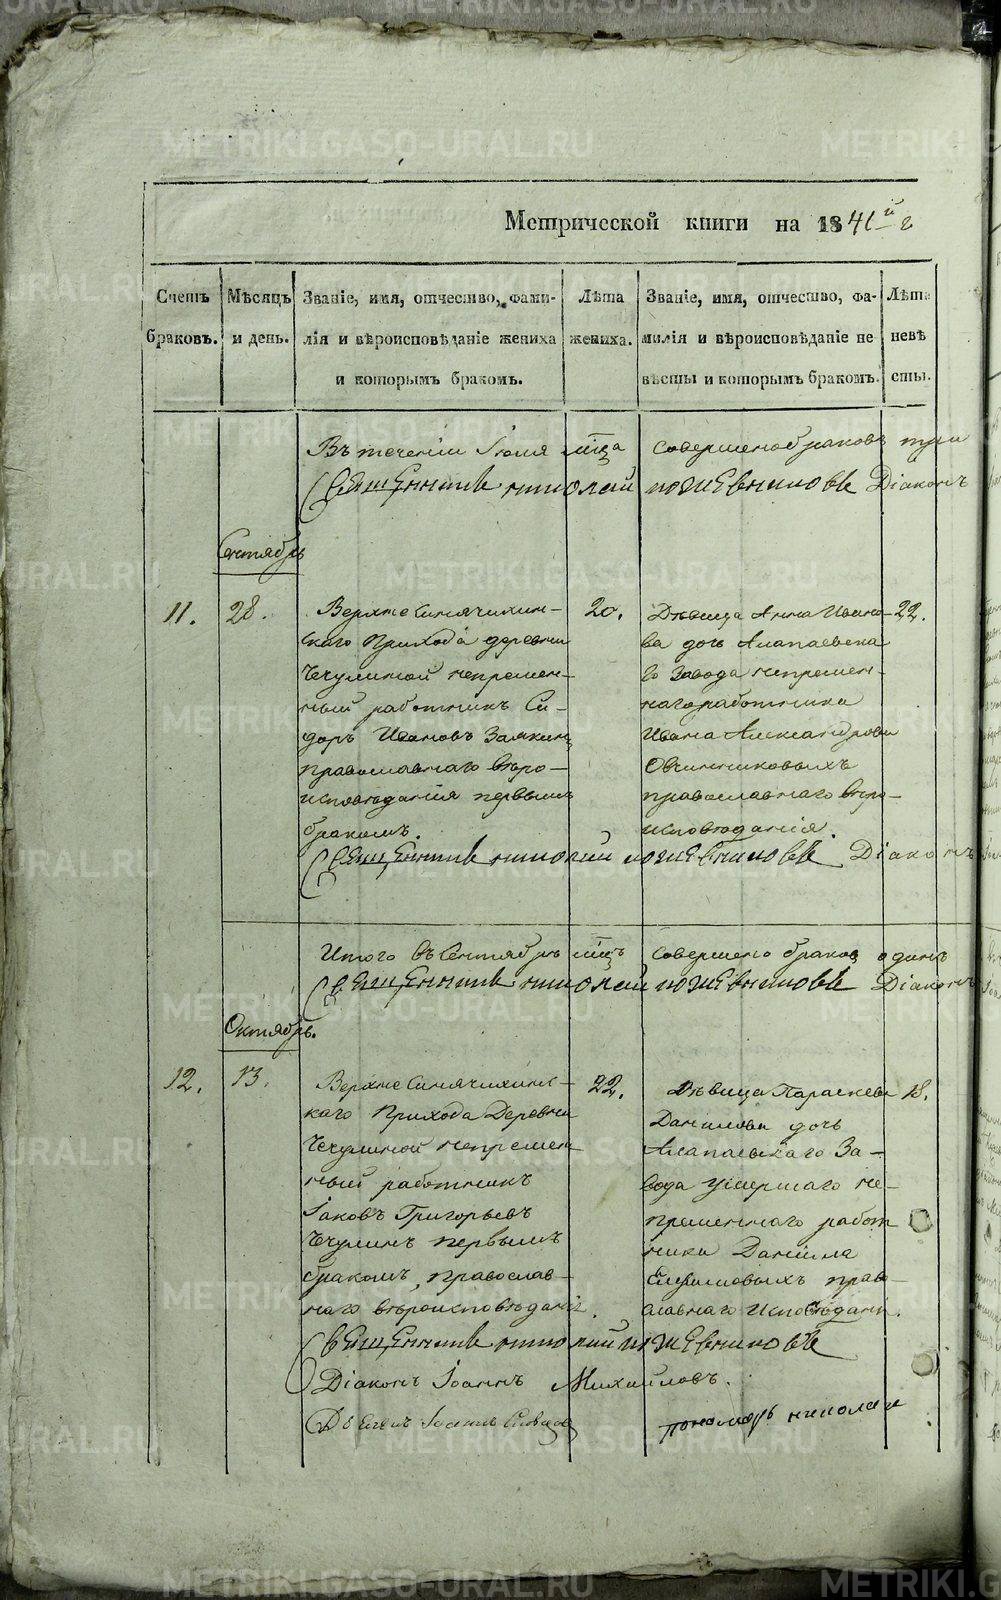 METRIKI.GASO-URAL.RU
Метрической книги на 1841й г
Счетъ браковъ.
Мѣсяцъ и день.
Званіе, имя, отчество, фами-
лія и вѣроисповѣданіе жениха
и которымъ бракомъ.
Лѣта жениха.
Званіе, имя, отчество, фа-
милія и вѣроисповѣданіе не
вѣсты и которымъ бракомъ.
Лѣта невѣ сты.
Въ теченіи Іюля мца совершено браковъ три
Священникъ Николай Кожевниковъ Діаконъ
Сентябрь
11. 28.
Верхне Синячихин-
скаго Прихода деревни
Чечулиной непремен-
ный работникъ Си-
доръ Ивановъ Замкинъ
православнаго вѣро-
исповѣданія первымъ
бракомъ.
20.
Дѣвица Анна Ивано-
ва дочь Алапаевска
го завода непремен-
наго работника
Ивана Александрова
Овчинниковыхъ
православнаго вѣро-
исповѣданія.
22.
Священникъ Николай Кожевниковъ Діаконъ
Итого въ Сентябрѣ мцѣ совершено браков одинъ
Священникъ Николай Кожевниковъ Діаконъ
Октябрь.
12. 13.
Верхне Синячихинс-
каго Прихода Деревни
Чечулиной непремен
ный работникъ
Іаковъ Григорьевъ
Чечулинъ первымъ
бракомъ, православ-
наго вѣроисповѣданія.
22.
Дѣвица Параскева
Данилова дочь
Алапаевскаго За-
вода умершаго не-
пременнаго работ
ника Даніила
православнаго исповѣдані.
18.
Священникъ Николай Кожевниковъ
Діаконъ Іоаннъ Михайловъ.
Іоаннъ
пономарь Николай